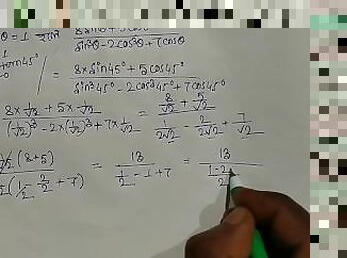 θ = 1 হলে (8 sinθ + 5cosθ) / (sin³θ - 2cos³θ + 7cosθ)
tan45° / = (8×sin45° + 5cos45°) / (sin³45° - 2cos³45° + 7cos45°)
(8×1/√2 + 5×1/√2) / ((1/√2)³ - 2×(1/√2)³ + 7×1/√2) = (8/√2 + 5/√2) / (1/2√2 - 2/2√2 + 7/√2)
(8+5) / (1/2 - 2/2 + 7) = 13 / (1/2 - 1 + 7) = 13 / (1-2 / 2)